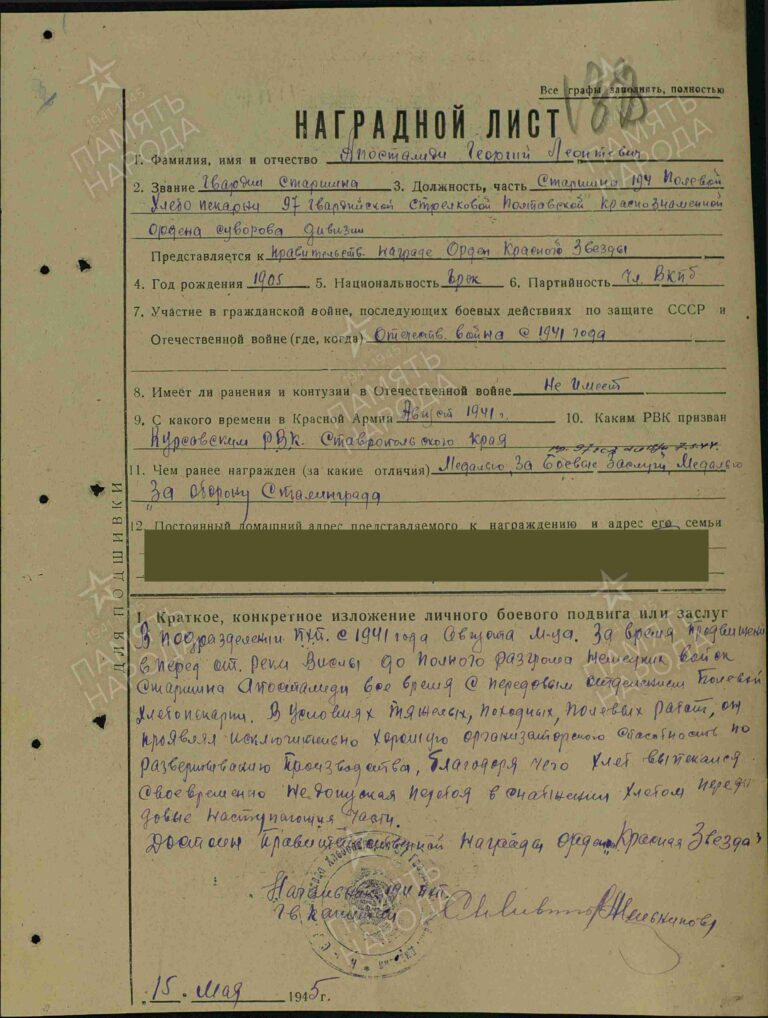 Все графы заполнять, полностью
НАГРАДНОЙ ЛИСТ
1. Фамилия, имя и отчество Апосталиди Георгий Леонтевич
2. Звание Гвардии Старшина 3. Должность, часть Старшина 194 Полевой
Хлебопекарни 97 Гвардийской Стрелковой Полтавской Краснознаменной
Ордена Суворова Дивизии
Представляется к правительств. награде Орден Красного Звезды
4. Год рождения 1905 5. Национальность Грек 6. Партийность Чл. ВКПб
7. Участие в гражданской войне, последующих боевых действиях по защите СССР и
Отечественной войне (где, когда) Отечеств. война с 1941 года
8. Имеёт ли ранения и контузии в Отечественной войне Не имеет
9. С какого времени в Красной Армии Август 1941 г. 10. Каким РВК призван
Курсавским РВК. Ставропольского Край
11. Чем ранее награжден (за какие отличия) Медалью, За Боевые Заслуги, Медалью
"За оборону Сталинграда
12. Постоянный домашний адрес представляемого к награждению и адрес его семьи
ДЛЯ ПОДШИВКИ
1. Краткое, конкретное изложение личного боевого подвига или заслуг
В подразделении ПХП. с 1941 года Августа м-ца. За время продвижени
вперед от. река Вислы до полного разгрома немецких войск
Старшина Апосталиди все время с передовым отделением Полевой
Хлебопекарни. В условиях тяжелых, походных, полевых работ, он
проявлял исключительно хорошую организаторского способность по
развертыванию производства, благодоря чего хлеб выпекался
своевременно недопуская перебоя в снабжении хлебом передо
довые наступающия части.
Достоин Правительственной Награды орден "Красная Звезда"
Начальник 194
Гв. капитан
"15" Мая 1945 г.
ПАМЯТЬ
НАРОДА